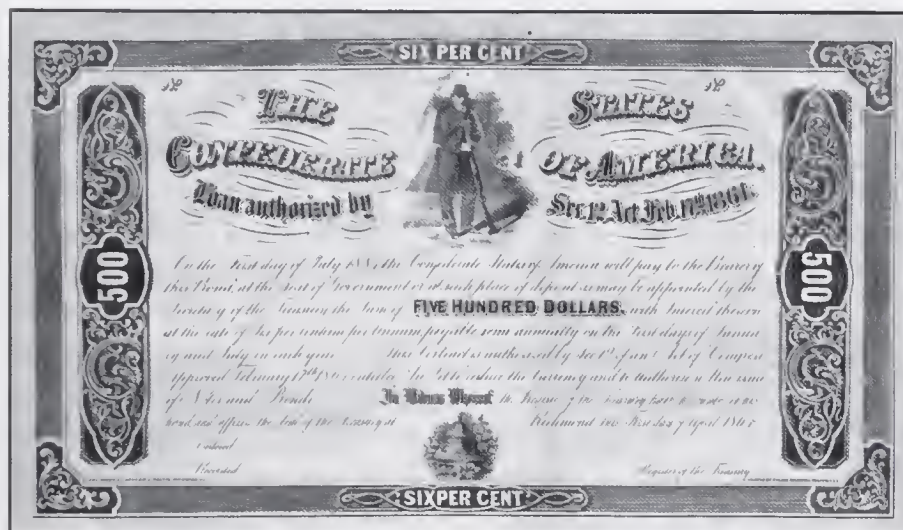 SIX PER CENT
№ №
THE STATES
CONFEDERATE OF AMERICA.
Loan authorized by Sec. 1st Act. Feb. 17th 1864.
On the first day of July the Confederate States of America will pay to the Bearer of
this Bond, at the Seat of Government or at such place of deposit as may be appointed by the
Secretary of the Treasury the Sum of FIVE HUNDRED DOLLARS, with Interest thereon
at the rate of Six per centum per annum payable semi annually on the First days of Janu
ary and July in each year This Contract is authorized by Sec 1st of an Act of Congress
approved February 17th entitled An Act to reduce the Currency and to authorize a New issue
of Notes and Bonds In Witness Whereof the Register of the Treasury hath
hand and affixed the Seal of the Treasury at Richmond this day of April
Entered
Recorded Register of the Treasury
500
500
SIX PER CENT